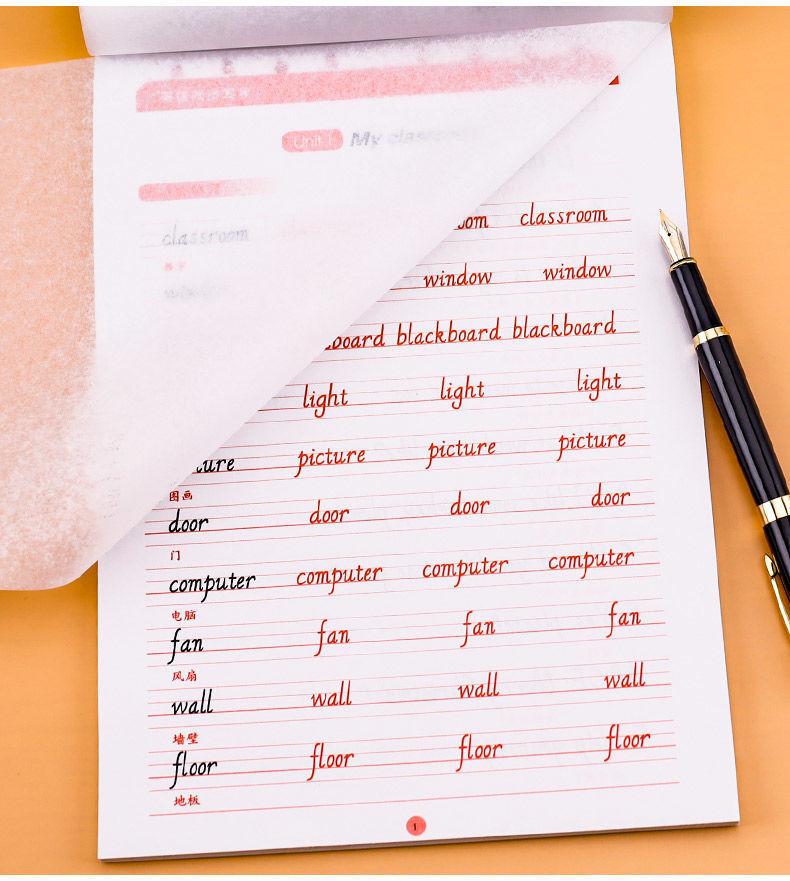 Unit 1 My classroom
classroom classroom
window window
blackboard blackboard
light light light
picture picture picture
图画
door door door door
门
computer computer computer computer
电脑
fan fan fan fan
风扇
wall wall wall wall
墙壁
floor floor floor floor
地板
1